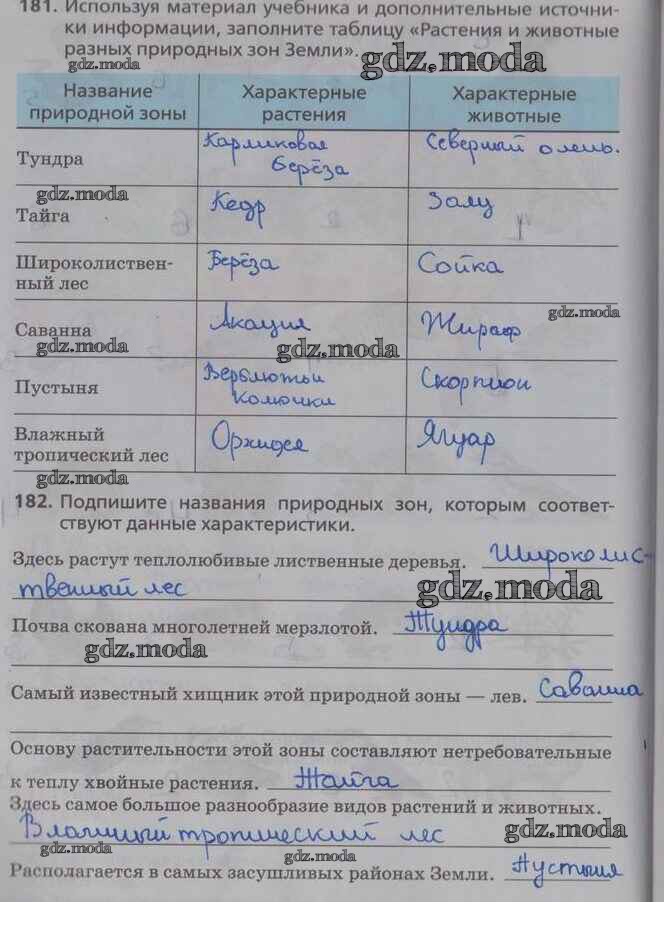 181. Используя материал учебника и дополнительные источни-
ки информации, заполните таблицу «Растения и животные
разных природных зон Земли».
gdz.moda
gdz.moda
Название природной зоны
Характерные растения
Характерные животные
Тундра
Карликовая берёза
Северный олень.
gdz.moda
Тайга
Кедр
Заяц
Широколиствен-
ный лес
Берёза
Сойка
gdz.moda
Саванна
Акация
Жираф
gdz.moda
gdz.moda
Пустыня
Верблютьи колючки
Скорпион
Влажный
тропический лес
Орхидея
Ягуар
gdz.moda
182. Подпишите названия природных зон, которым соответ-
ствуют данные характеристики.
Здесь растут теплолюбивые лиственные деревья. Широколис-
твенный лес
gdz.moda
Почва скована многолетней мерзлотой. Тундра
gdz.moda
Самый известный хищник этой природной зоны — лев. Саванна
Основу растительности этой зоны составляют нетребовательные
к теплу хвойные растения. Тайга
Здесь самое большое разнообразие видов растений и животных.
Влажный тропический лес
gdz.moda
gdz.moda
gdz.moda
Располагается в самых засушливых районах Земли. Пустыня